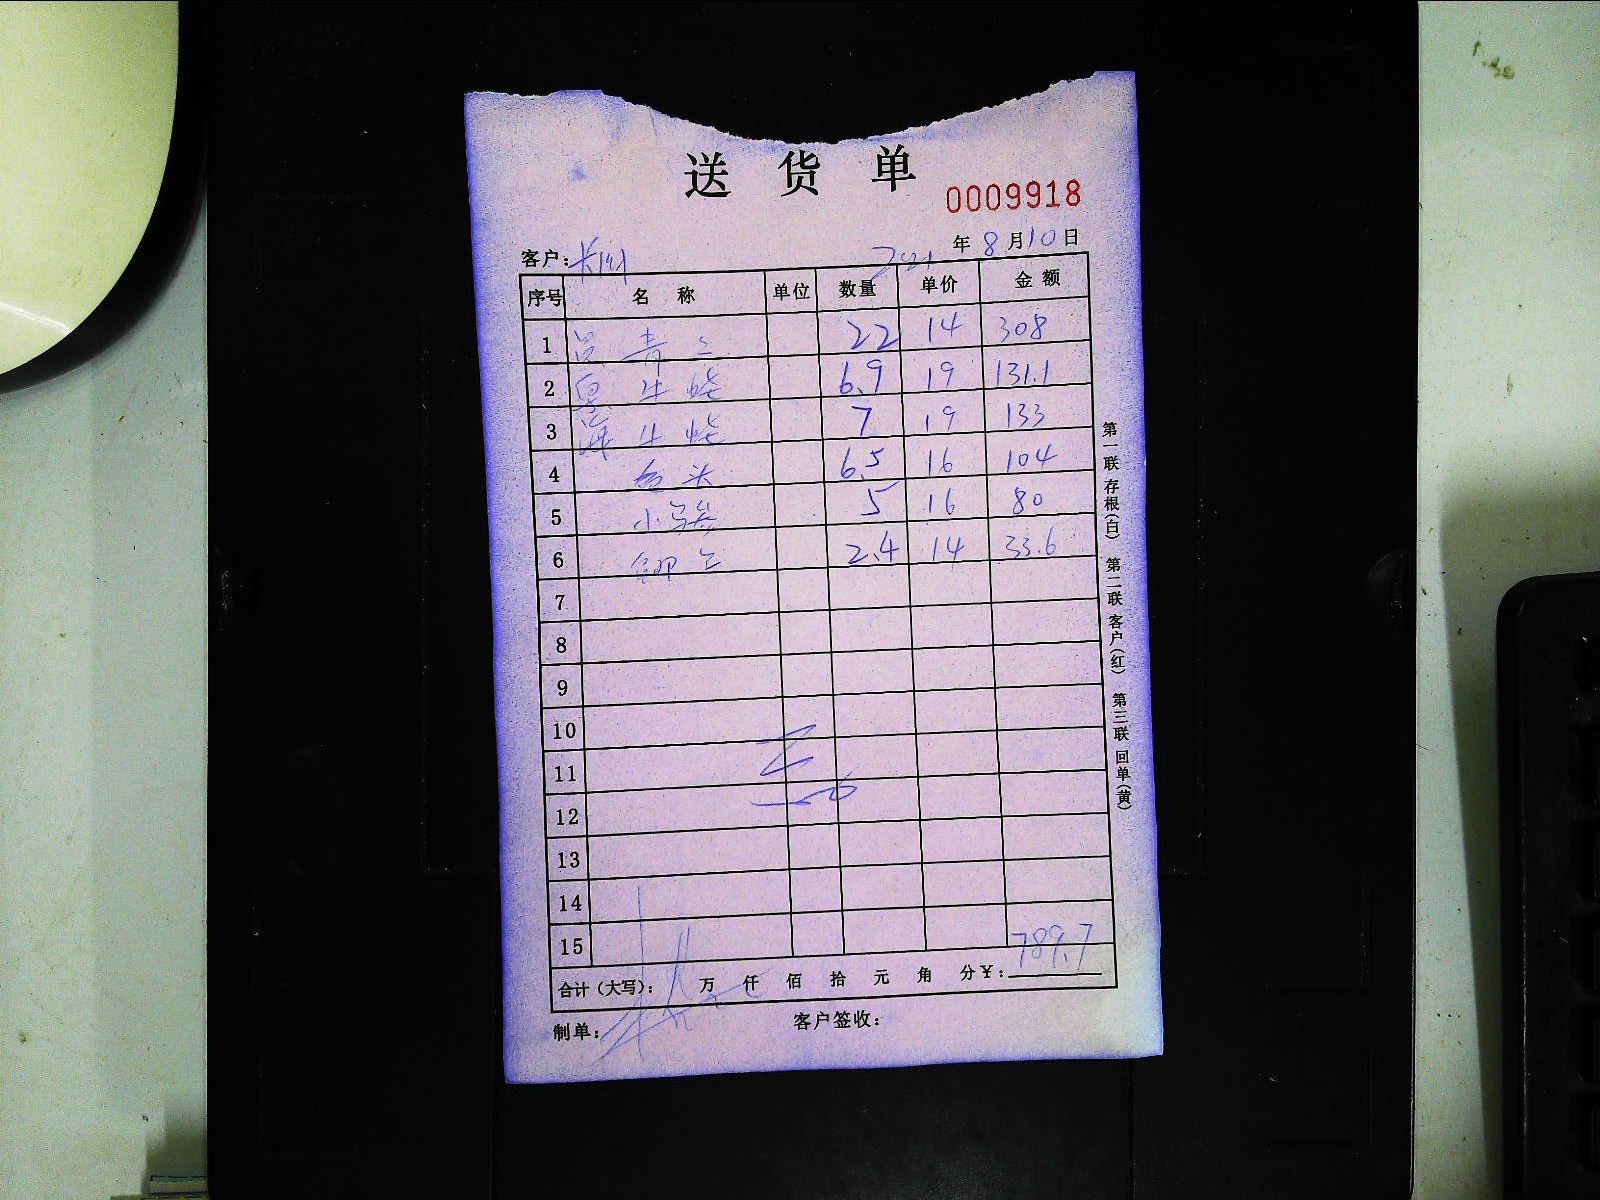 送 货 单
0009918
客户： 2021 年 8 月 10 日
序号 名 称 单位 数量 单价 金 额
1 22 14 308
2 6.9 19 131.1
3 7 19 133
4 6.5 16 104
5 5 16 80
6 2.4 14 33.6
7
8
9
10
11
12
13
14
15
789.7
合计（大写）： 万 仟 佰 拾 元 角 分 ￥：
制单： 客户签收：
第一联 存根（白） 第二联 客户（红） 第三联 回单（黄）